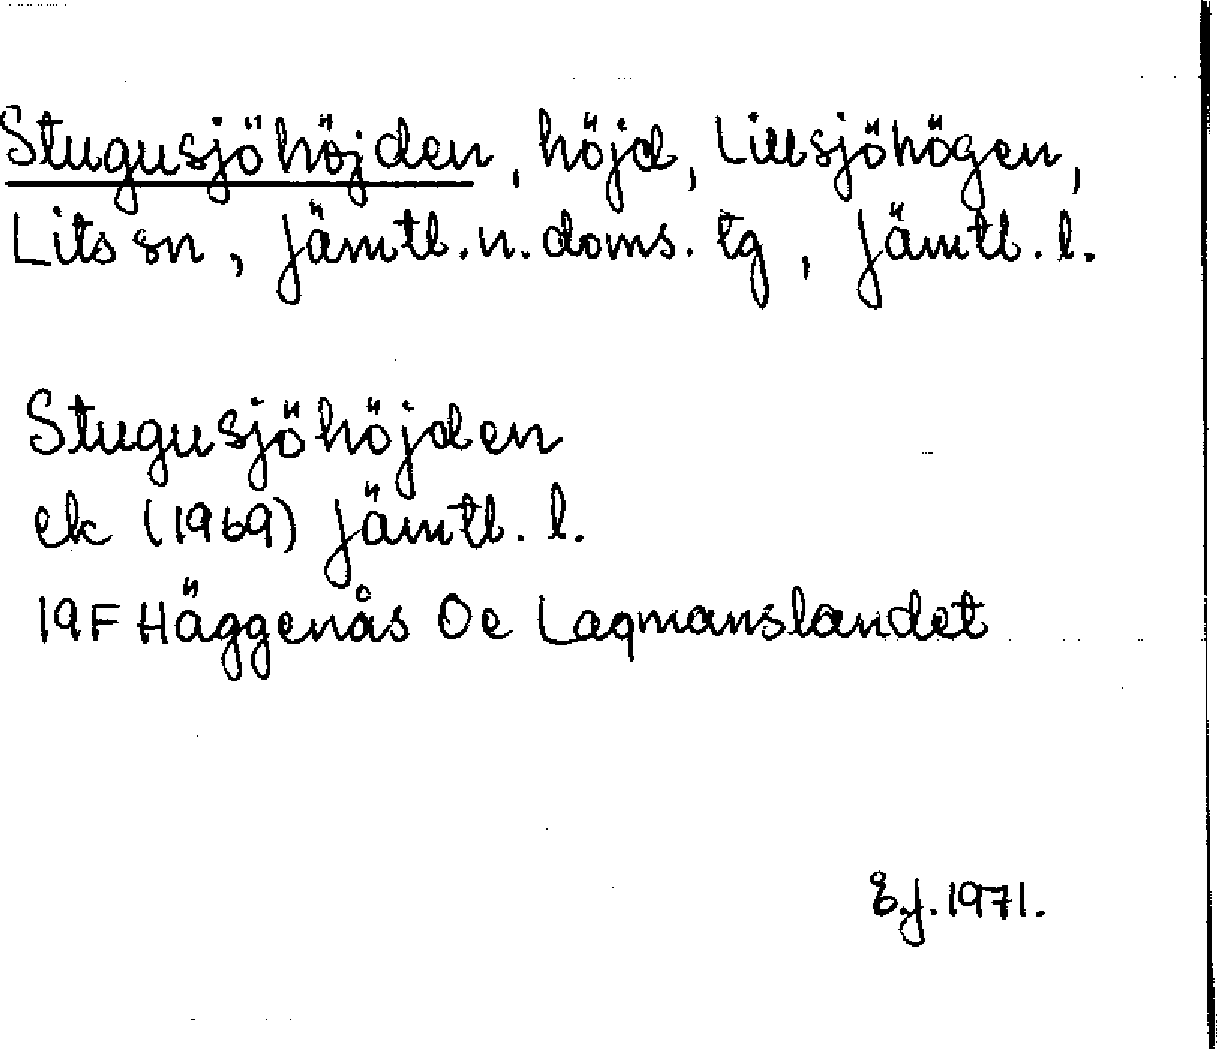 Stugusjöhöjden, höjd, Lillsjöhögen,
Lits sn, Jämtl. n. doms. tg, Jämtl. l.
Stugusjöhöjden
ek (1969) Jämtl. l.
19F Häggenås Oe Laqmanslandet
E.J. 1971.